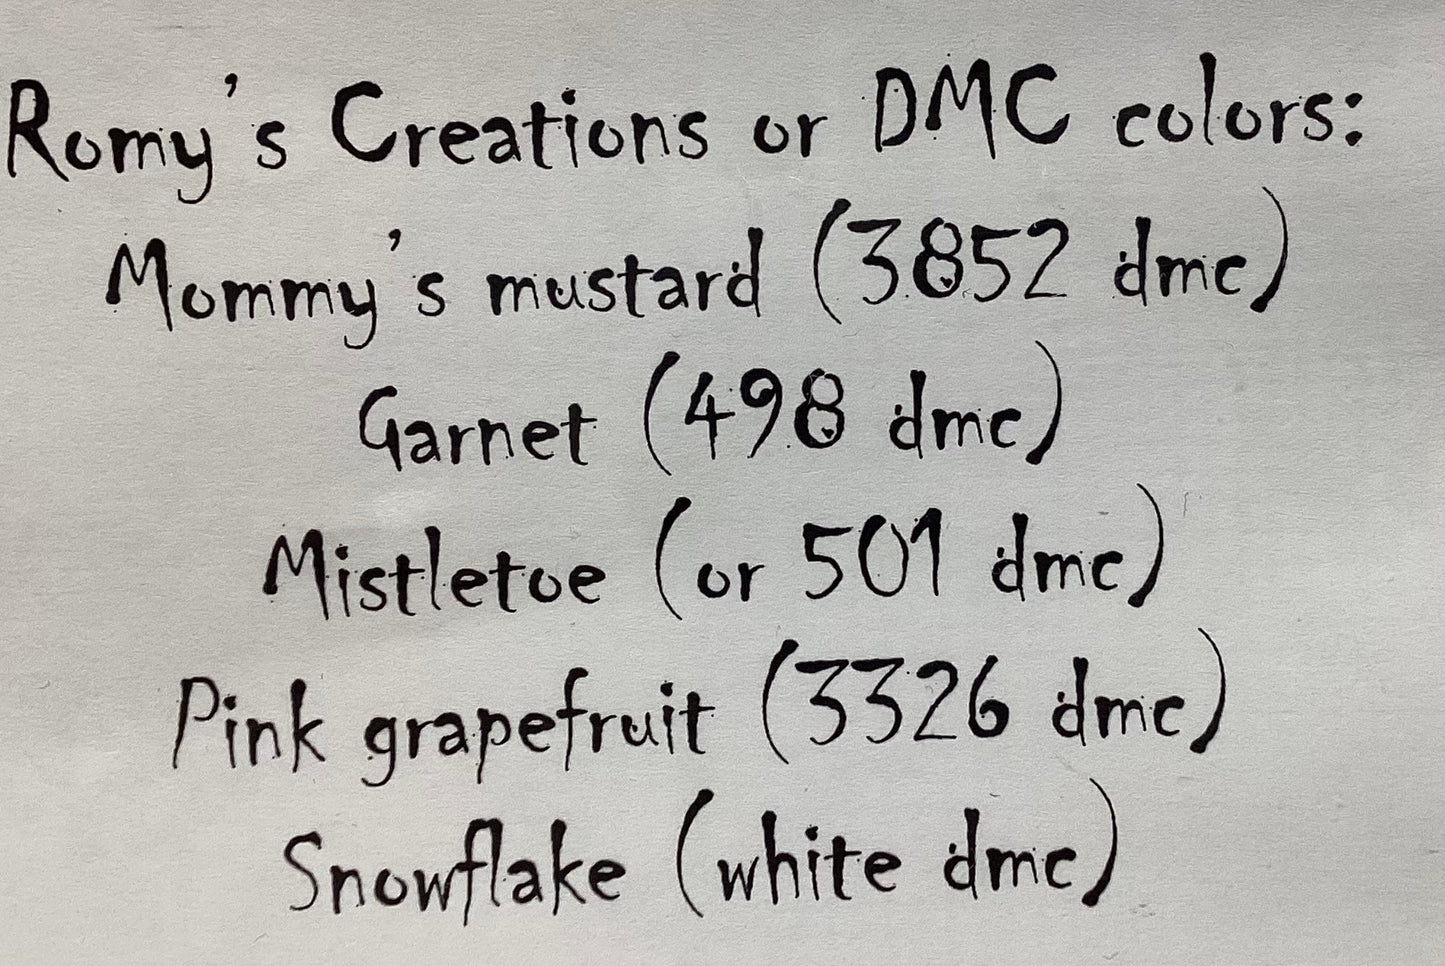 Romy's Creations or DMC colors:
Mommy's mustard (3852 dmc)
Garnet (498 dmc)
Mistletoe (or 501 dmc)
Pink grapefruit (3326 dmc)
Snowflake (white dmc)